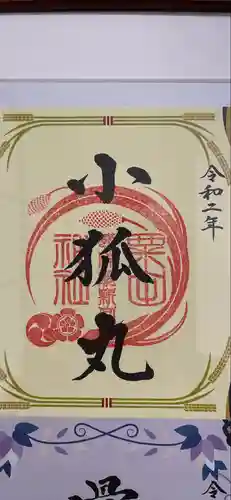 小狐丸
令和二年
粟田
神社
令